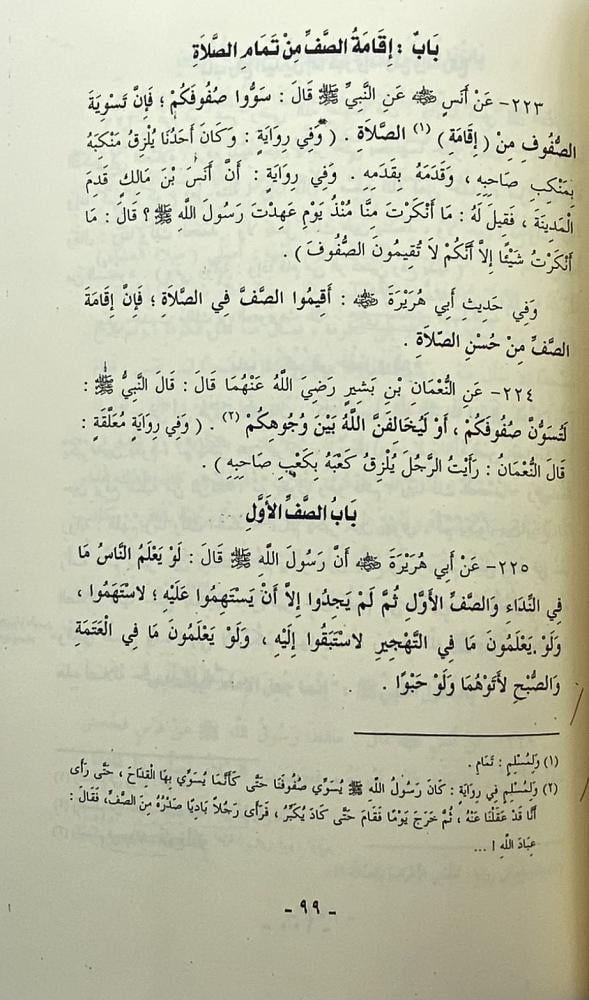 بَابٌ : إِقَامَةُ الصَّفِّ مِنْ تَمَامِ الصَّلاَةِ
٢٢٣- عَنْ أَنَسٍ ﷺ عَنِ النَّبِيِّ ﷺ قَالَ : سَوُّوا صُفُوفَكُمْ ؛ فَإِنَّ تَسْوِيَةَ
الصُّفُوفِ مِنْ ( إِقَامَةِ ) (١) الصَّلاَةِ . ( وَفِي رِوَايَةٍ : وَكَانَ أَحَدُنَا يُلْزِقُ مَنْكِبَهُ
بِمَنْكِبِ صَاحِبِهِ ، وَقَدَمَهُ بِقَدَمِهِ . وَفِي رِوَايَةٍ : أَنَّ أَنَسَ بْنَ مَالِكٍ قَدِمَ
الْمَدِينَةَ ، فَقِيلَ لَهُ : مَا أَنْكَرْتَ مِنَّا مُنْذُ يَوْمِ عَهِدْتَ رَسُولَ اللَّهِ ﷺ ؟ قَالَ : مَا
أَنْكَرْتُ شَيْئًا إِلاَّ أَنَّكُمْ لاَ تُقِيمُونَ الصُّفُوفَ ) .
وَفِي حَدِيثِ أَبِي هُرَيْرَةَ ﷺ : أَقِيمُوا الصَّفَّ فِي الصَّلاَةِ ؛ فَإِنَّ إِقَامَةَ
الصَّفِّ مِنْ حُسْنِ الصَّلاَةِ .
٢٢٤- عَنِ النُّعْمَانِ بْنِ بَشِيرٍ رَضِيَ اللَّهُ عَنْهُمَا قَالَ : قَالَ النَّبِيُّ ﷺ :
لَتُسَوُّنَّ صُفُوفَكُمْ ، أَوْ لَيُخَالِفَنَّ اللَّهُ بَيْنَ وُجُوهِكُمْ (٢) . ( وَفِي رِوَايَةٍ مُعَلَّقَةٍ :
قَالَ النُّعْمَانُ : رَأَيْتُ الرَّجُلَ يُلْزِقُ كَعْبَهُ بِكَعْبِ صَاحِبِهِ ) .
بَابُ الصَّفِّ الأَوَّلِ
٢٢٥- عَنْ أَبِي هُرَيْرَةَ ﷺ أَنَّ رَسُولَ اللَّهِ ﷺ قَالَ : لَوْ يَعْلَمُ النَّاسُ مَا
فِي النِّدَاءِ وَالصَّفِّ الأَوَّلِ ثُمَّ لَمْ يَجِدُوا إِلاَّ أَنْ يَسْتَهِمُوا عَلَيْهِ ؛ لاسْتَهَمُوا ،
وَلَوْ يَعْلَمُونَ مَا فِي التَّهْجِيرِ لاسْتَبَقُوا إِلَيْهِ ، وَلَوْ يَعْلَمُونَ مَا فِي الْعَتَمَةِ
وَالصُّبْحِ لأَتَوْهُمَا وَلَوْ حَبْوًا .
(١) وَلِمُسْلِمٍ : تَمَامِ .
(٢) وَلِمُسْلِمٍ فِي رِوَايَةٍ : كَانَ رَسُولُ اللَّهِ ﷺ يُسَوِّي صُفُوفَنَا حَتَّى كَأَنَّمَا يُسَوِّي بِهَا الْقِدَاحَ ، حَتَّى رَأَى
أَنَّا قَدْ عَقَلْنَا عَنْهُ ، ثُمَّ خَرَجَ يَوْمًا فَقَامَ حَتَّى كَادَ يُكَبِّرُ ، فَرَأَى رَجُلاً بَادِيًا صَدْرُهُ مِنَ الصَّفِّ، فَقَالَ :
عِبَادَ اللَّهِ ! ...
- ٩٩ -